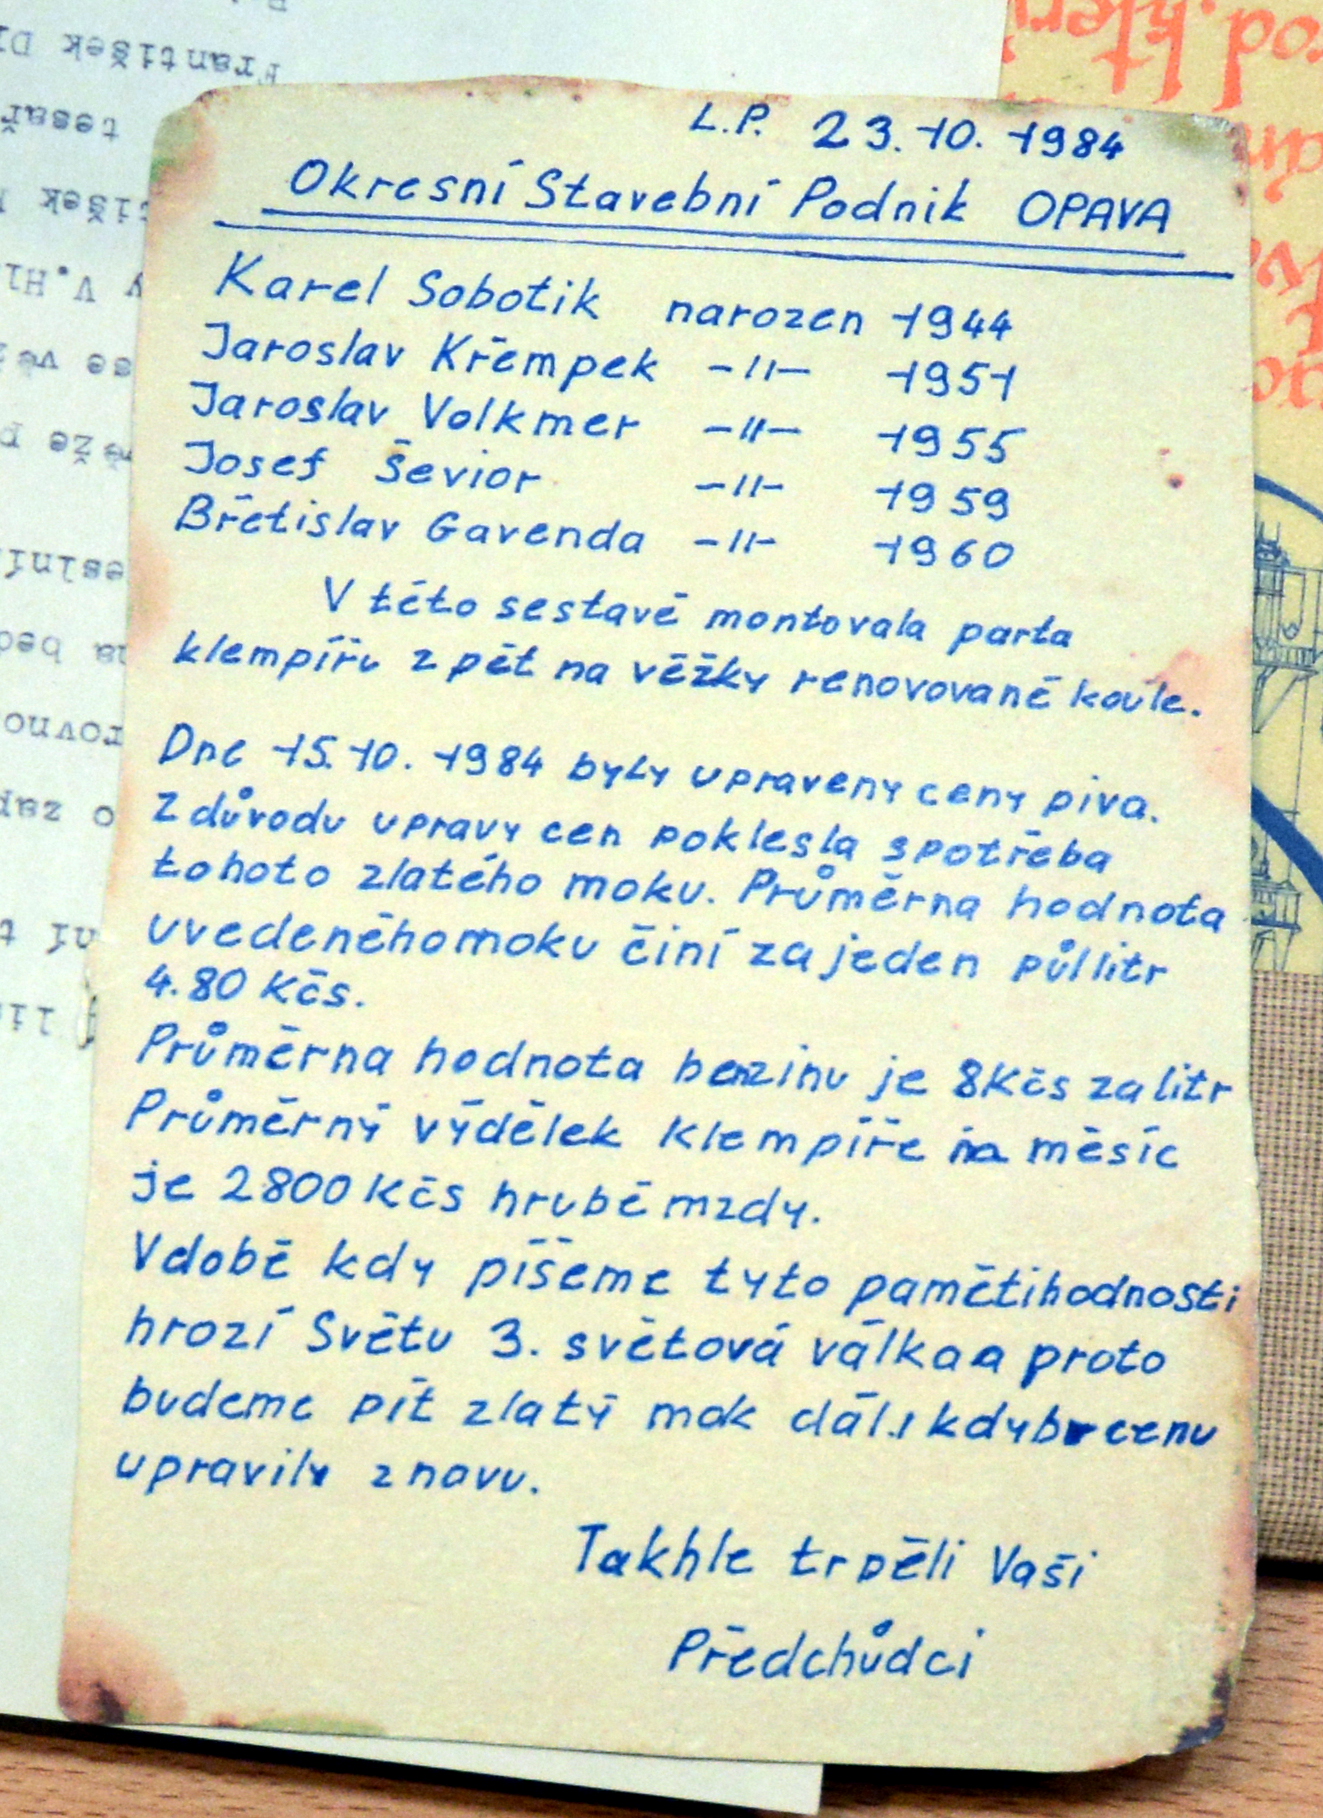 L.P. 23.10.1984
Okresní Stavební Podnik OPAVA
Karel Sobotik narozen 1944
Jaroslav Křempek -11- 1951
Jaroslav Volkmer -11- 1955
Josef Ševior -11- 1959
Břetislav Gavenda -11- 1960
V této sestavě montovala parta
klempířu zpět na věžky renovované koule.
Dne 15.10.1984 byly upraveny ceny piva.
Z důvodu upravy cen poklesla spotřeba
tohoto zlatého moku. Průměrna hodnota
uvedeného moku činí za jeden půllitr
4.80 Kčs.
Průměrna hodnota benzinu je 8Kčs za litr
Průměrný výdělek klempíře na měsíc
je 2800 Kčs hrubé mzdy.
V době kdy píšeme tyto pamětihodnosti
hrozí Světu 3. světová válka a proto
budeme pít zlatý mok dál i kdyby cenu
upravily znovu.
Takhle trpěli Vaši
Předchůdci
František
tesař